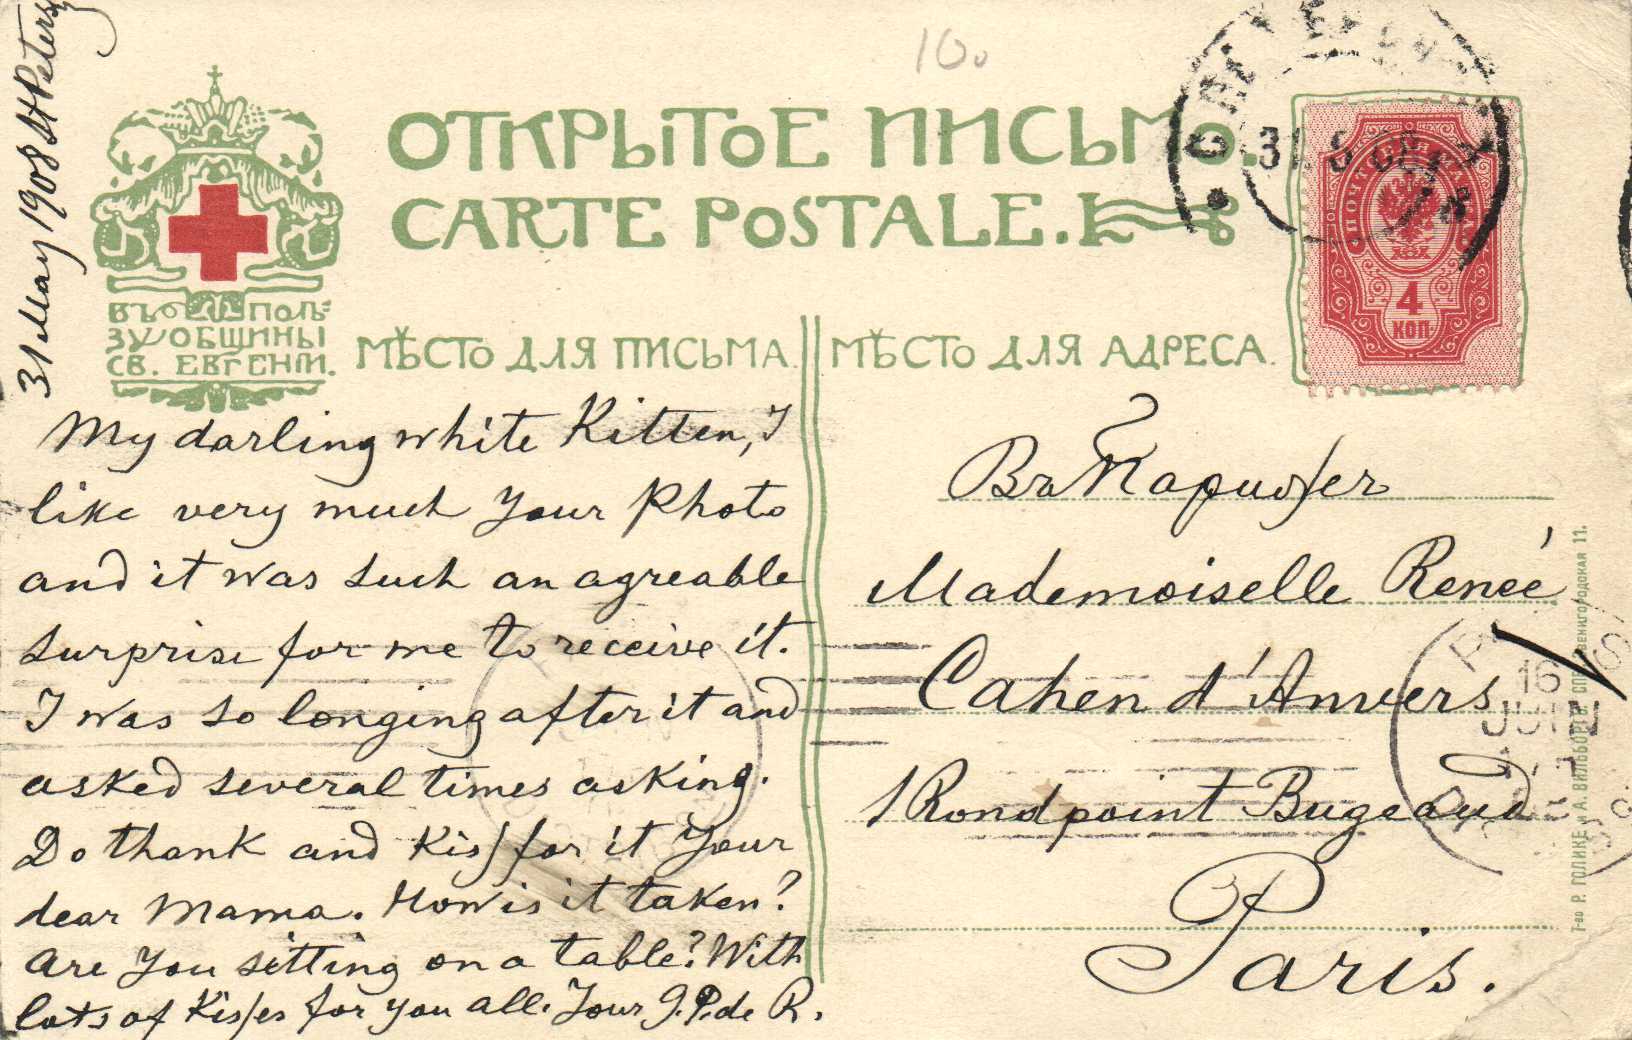 31 May 1908 St Petersg
10.
ОТКРЫТОЕ ПИСЬМО.
CARTE POSTALE.
ВЪ ПОЛЬ-
ЗУ ОБЩИНЫ
СВ. ЕВГЕНІИ.
МѢСТО ДЛЯ ПИСЬМА.
МѢСТО ДЛЯ АДРЕСА.
31.5.08
ПОЧТОВАЯ МАРКА
4
КОП.
My darling white Kitten, I
like very much Your Photo
and it was such an agreable
surprise for me to receive it.
I was so longing after it and
asked several times asking.
Do thank and Kiss for it Your
dear Mama. How is it taken?
Are You sitting on a table? With
lots of Kisses for you all. Your J. P. de R.
Въ Парижъ
Mademoiselle Renée
Cahen d'Anvers
1 Rondpoint Bugeaud
Paris.
16
JUIN
Т-во Р. ГОЛИКЕ и А. ВИЛЬБОРГЪ. СПБ. ЗВЕНИГОРОДСКАЯ 11.